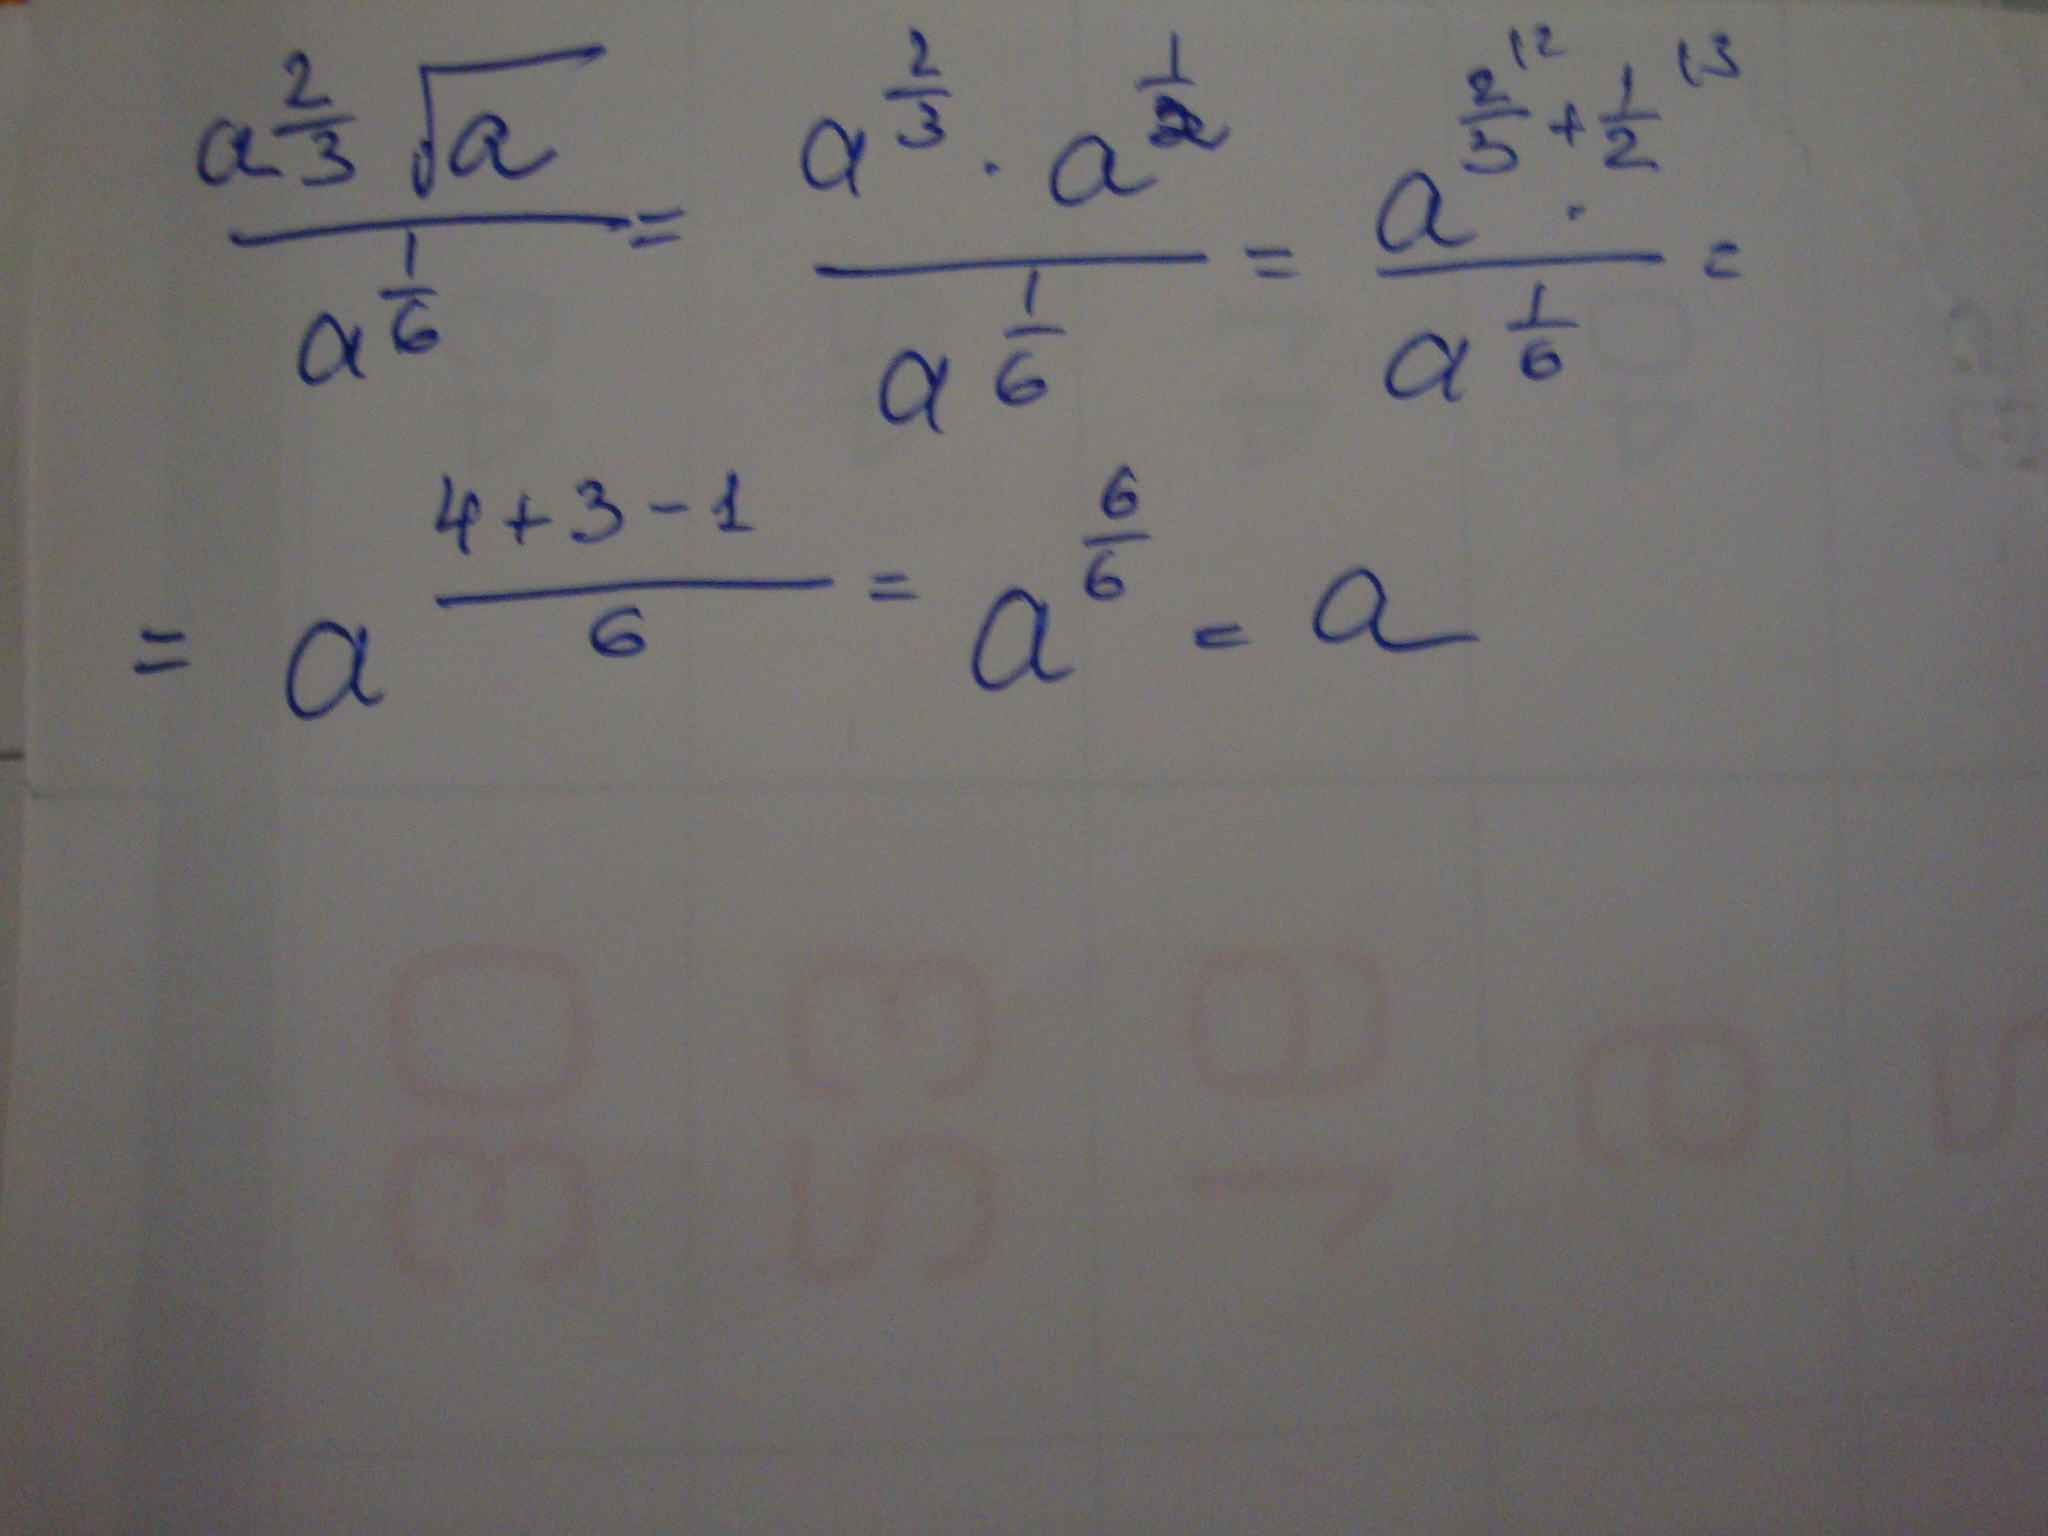 a^(2/3) √a / a^(1/6) = a^(2/3) · a^(1/2) / a^(1/6) = a^(2/3 (2 + 1/2 (3) · / a^(1/6) =
= a^((4+3-1)/6) = a^(6/6) = a